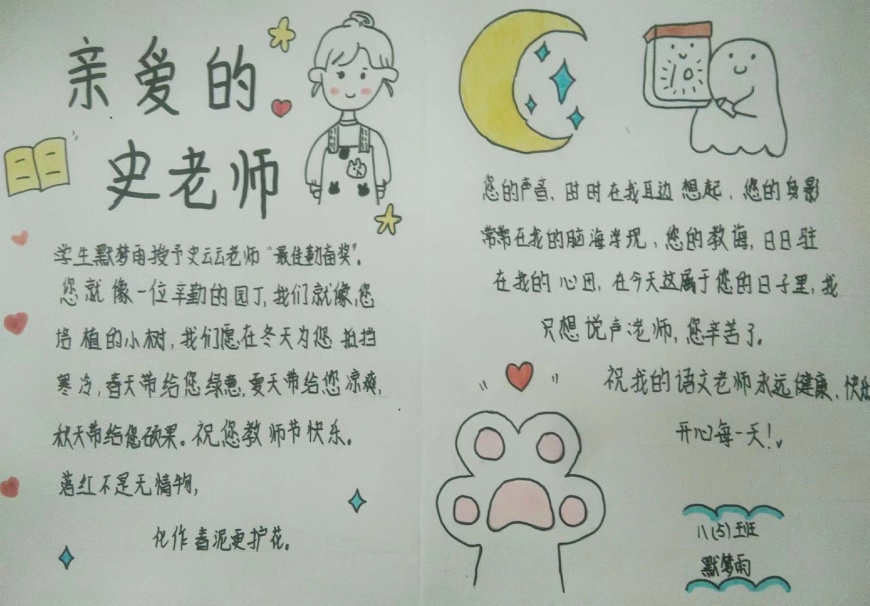 亲爱的
史老师
学生默梦雨授予史云云老师“最佳勤奋奖”。
您就像一位辛勤的园丁，我们就像您
培植的小树，我们愿在冬天为您抵挡
寒冷，春天带给您绿意，夏天带给您凉爽，
秋天带给您硕果。祝您教师节快乐。
落红不是无情物，
化作春泥更护花。
10
您的声音，时时在我耳边想起，您的身影
常常在我的脑海浮现，您的教诲，日日驻
在我的心田，在今天这属于您的日子里，我
只想说声老师，您辛苦了。
祝我的语文老师永远健康、快乐
开心每一天！
八（5）班
默梦雨